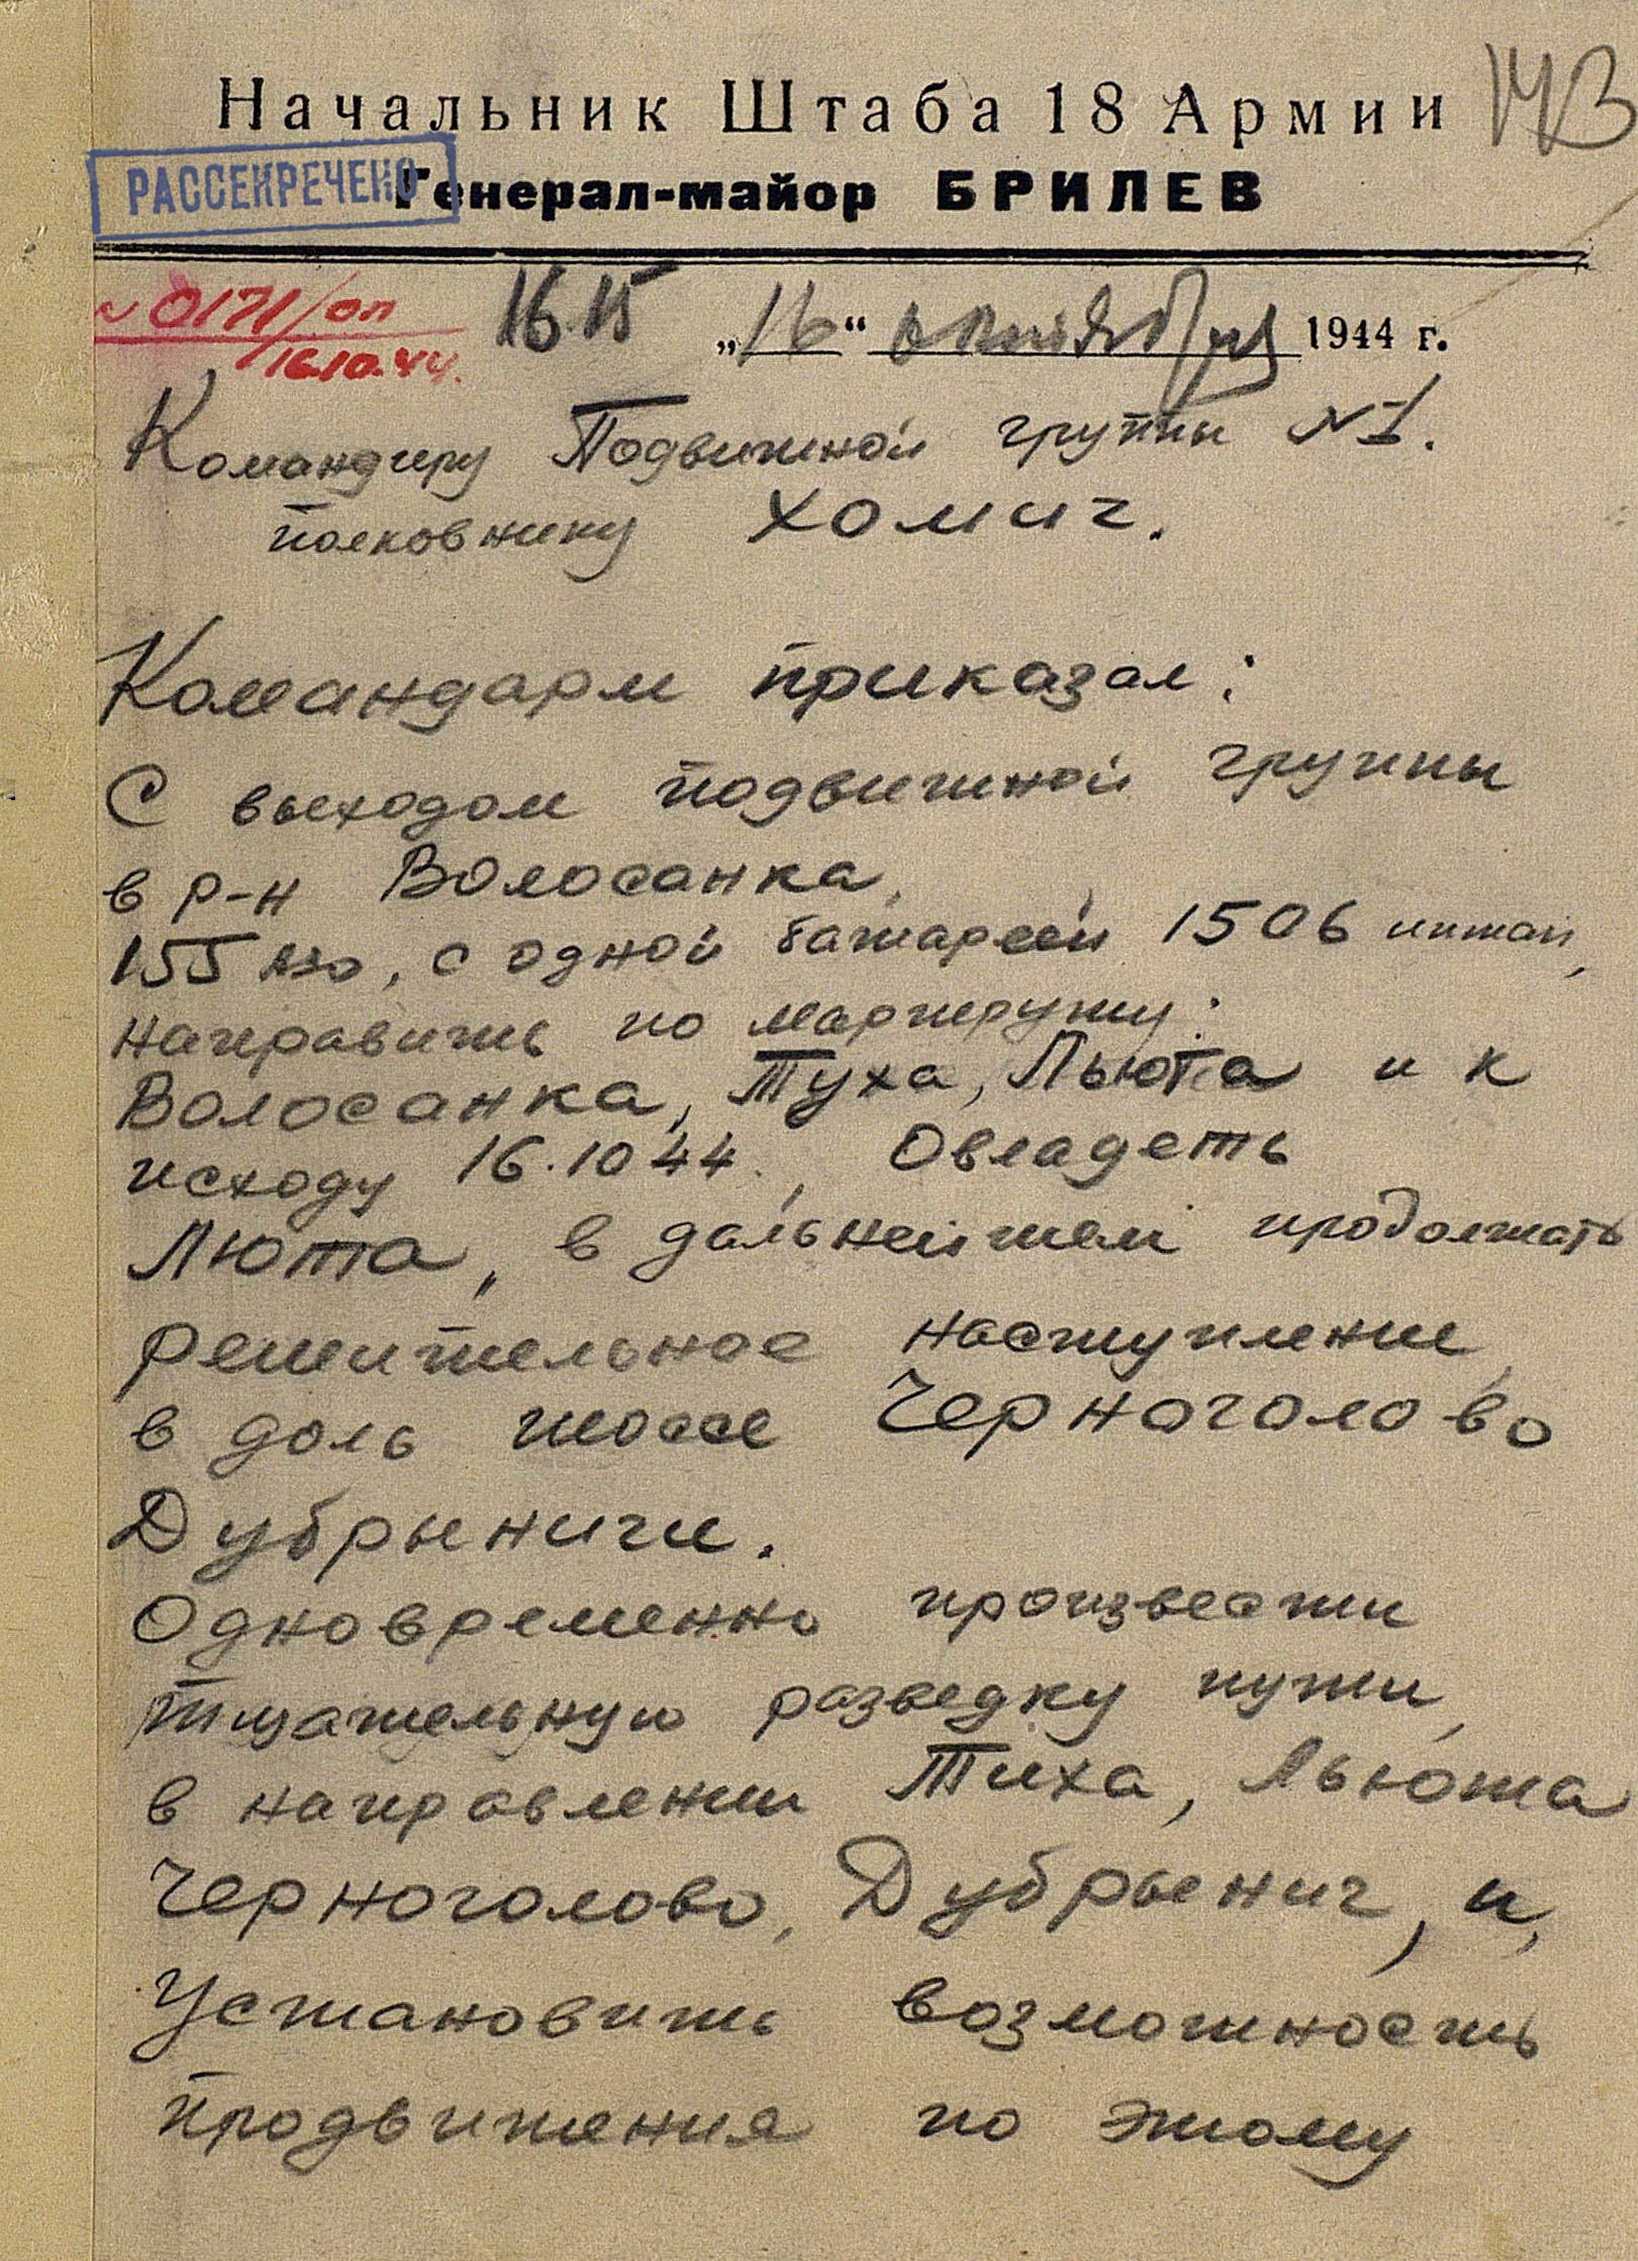 Начальник Штаба 18 Армии 143
РАССЕКРЕЧЕНО
Генерал-майор БРИЛЕВ
№ 0171/оп
16.10.44.
16.15 „16“ октября 1944 г.
Командиру Подвижной группы №1.
полковнику Хомич.
Командарм приказал:
С выходом подвижной группы
в р-н Волосанка,
155, с одной батареей 1506 иптап,
направить по маршруту:
Волосанка, Туха, Льюта и к
исходу 16.10 44., Овладеть
Люта, в дальнейшем продолжать
решительное наступление,
в доль шоссе Черноголово
Дубрыничи.
Одновременно произвести
тщательную разведку пути,
в направлении Тиха, Льюта
Черноголово, Дубрынич, и,
Установить возможность
продвижения по этому